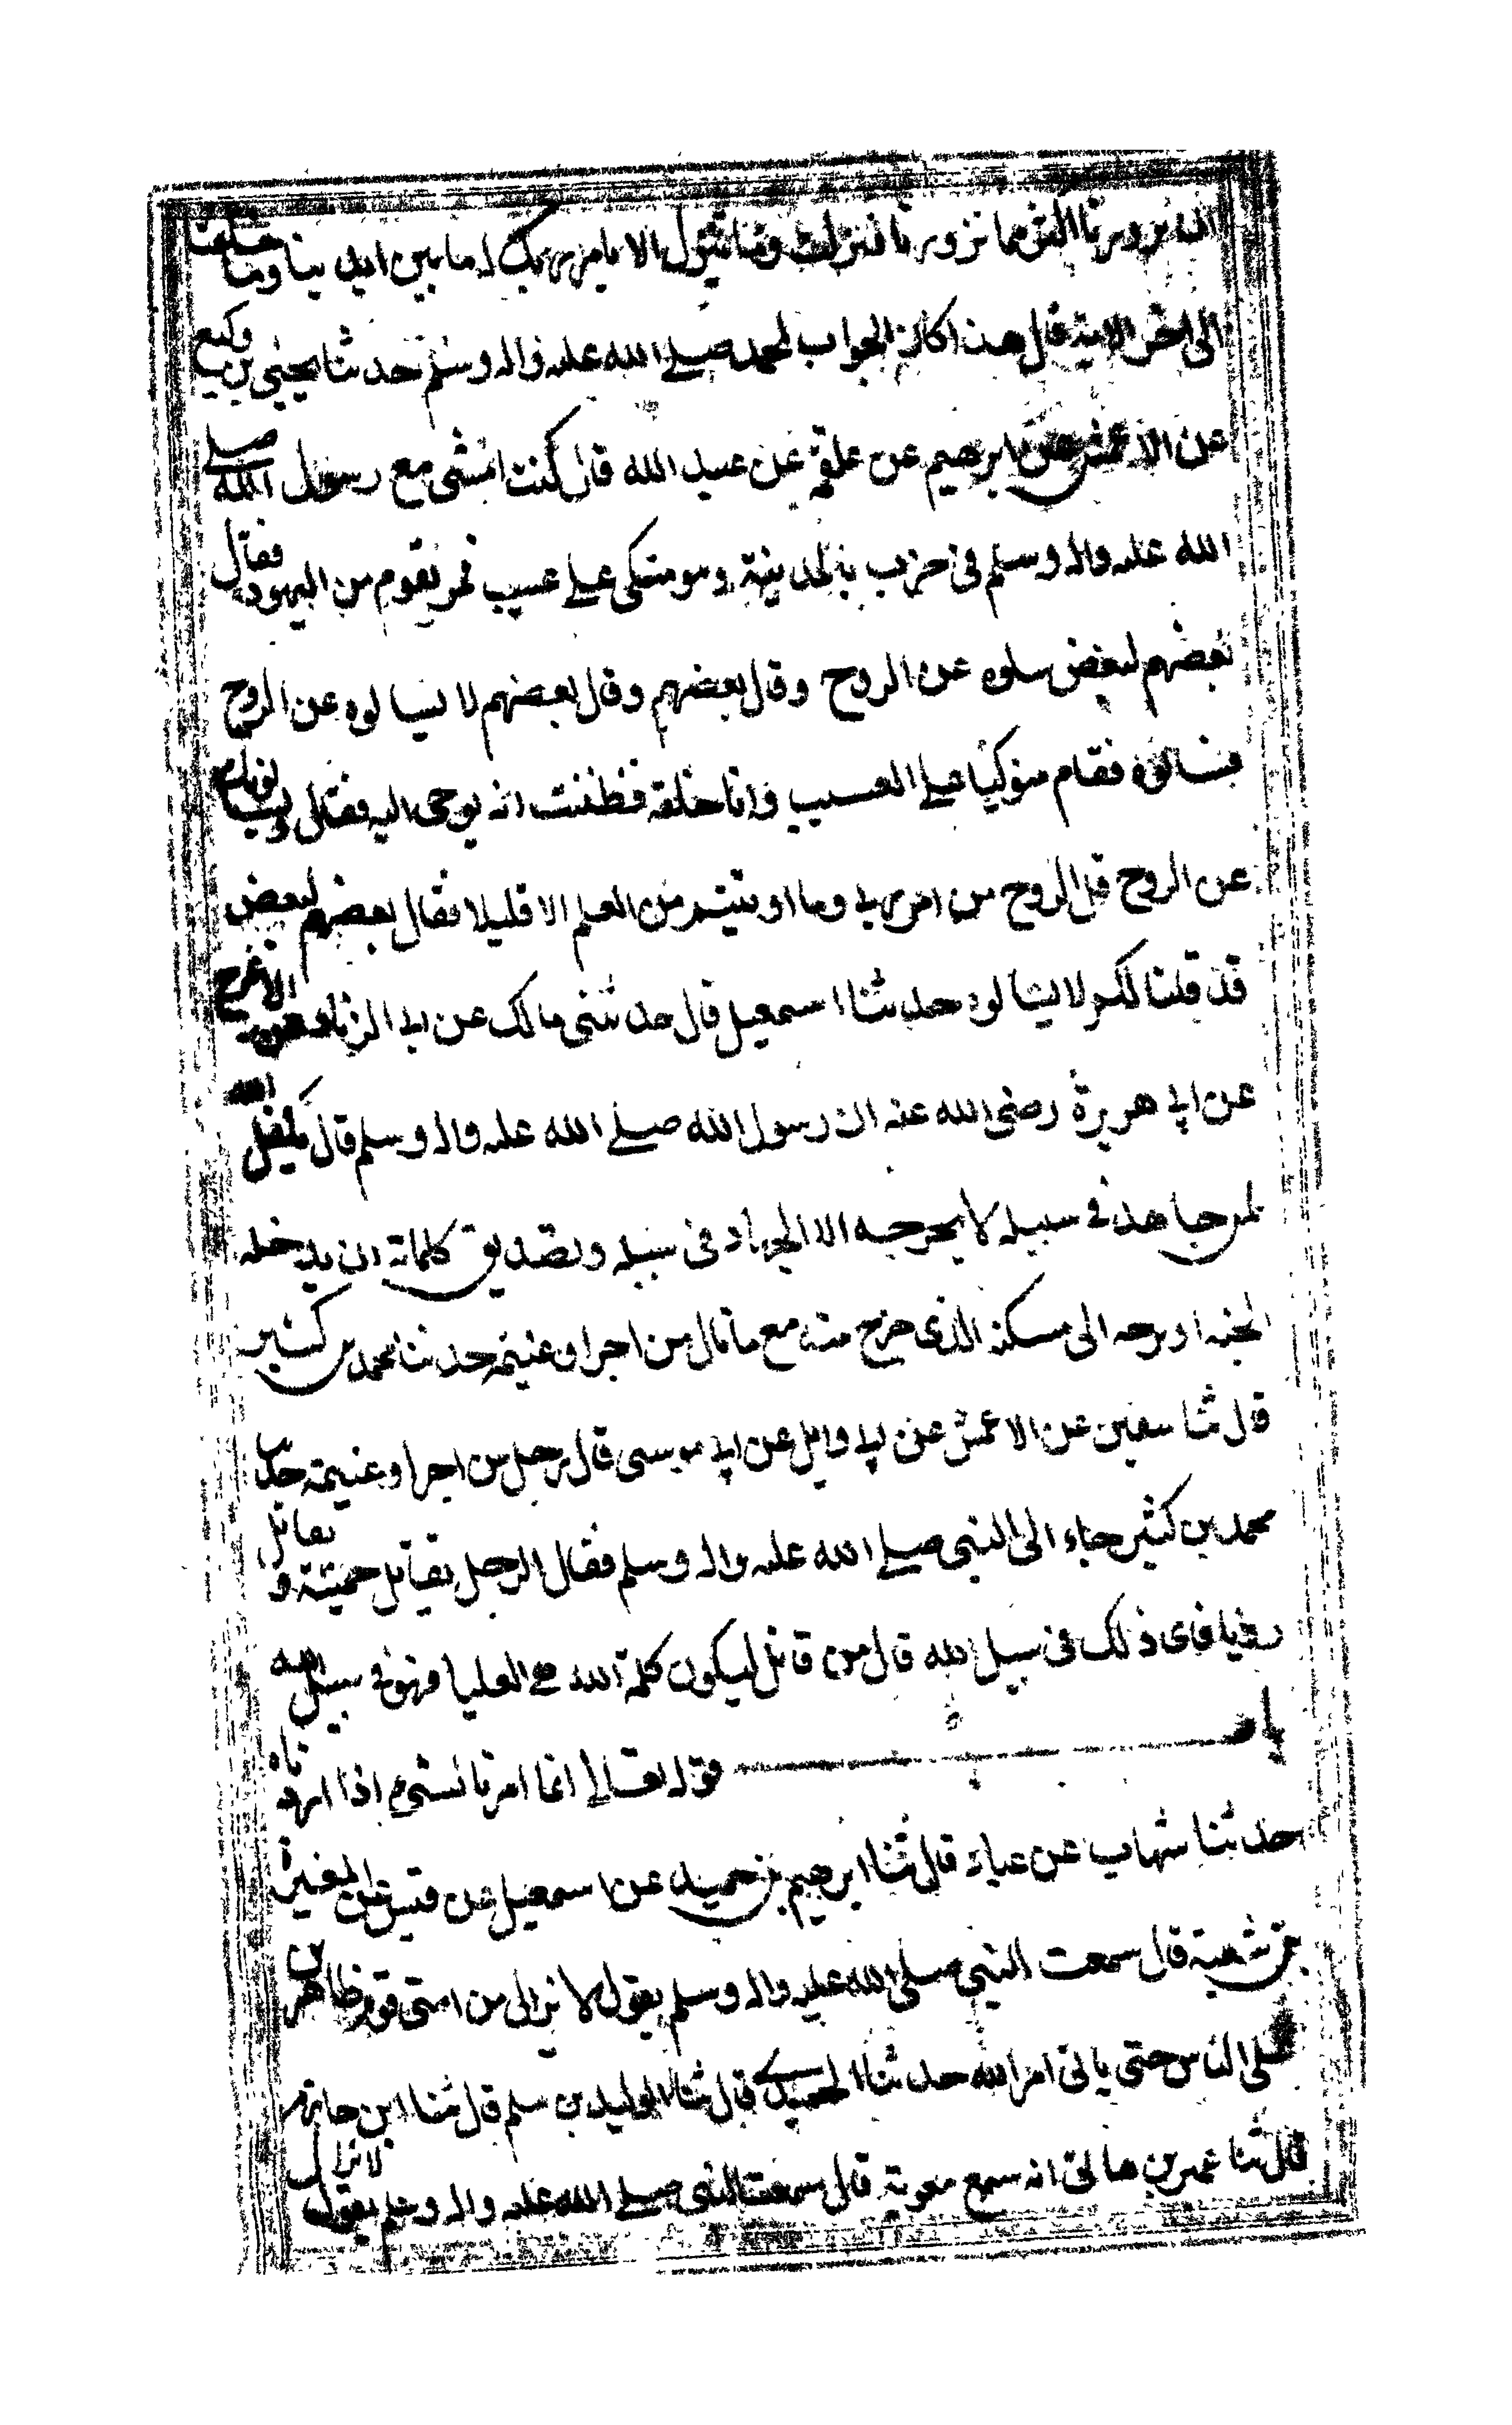 ان تزورنا اكثر مما تزورنا فنزلت وما نتنزل الا بامر ربك له ما بين ايدينا وما خلفنا
الى اخر الاية قال هذا كان الجواب لمحمد صلى الله عليه واله وسلم حدثنا يحيى بن وكيع
عن الاعمش عن ابرهيم عن علقمة عن عبد الله قال كنت امشى مع رسول الله صلى
الله عليه واله وسلم فى حرب بالمدينة وهو متكى على عسيب فمر بقوم من اليهود فقال
بعضهم لبعض سلوه عن الروح وقال بعضهم وقال بعضهم لا تسالوه عن الروح
فسالوه فقام متوكيا على العسيب وانا خلفه فظننت انه يوحى اليه فقال ويسالونك
عن الروح قل الروح من امر ربى وما اوتيتم من العلم الا قليلا فقال بعضهم لبعض
قد قلنا لكم لا تسالوه حدثنا اسمعيل قال حدثنى مالك عن ابى الزناد عن الاعرج
عن ابى هريرة رضى الله عنه ان رسول الله صلى الله عليه واله وسلم قال تكفل الله
لمن جاهد فى سبيله لا يخرجه الا الجهاد فى سبيله وتصديق كلماته ان يدخله
الجنة او يرجعه الى مسكنه الذى خرج منه مع ما نال من اجر او غنيمة حدثنا محمد بن كثير
قال ثنا سفين عن الاعمش عن ابى وايل عن ابى موسى قال رجل من اجر او غنيمة حدثنا
محمد بن كثير جاء الى النبى صلى الله عليه واله وسلم فقال الرجل يقاتل حمية و يقاتل
رؤيا فاى ذلك فى سبيل الله قال من قاتل ليكون كلمة الله هى العليا فهو فى سبيل الله
باب قوله تعالى انما امرنا لشىء اذا اردناه
حدثنا شهاب عن عباد قال ثنا ابرهيم بن حميد عن اسمعيل عن قيس عن المغيرة
بن شعبة قال سمعت النبى صلى الله عليه واله وسلم يقول لا يزال من امتى قوم ظاهرين
على الناس حتى ياتى امر الله حدثنا الحميدى قال ثنا الوليد بن سلم قال ثنا ابن جابر
قال ثنا عمير بن هانى انه سمع معوية قال سمعت النبى صلى الله عليه واله وسلم يقول لا تزال